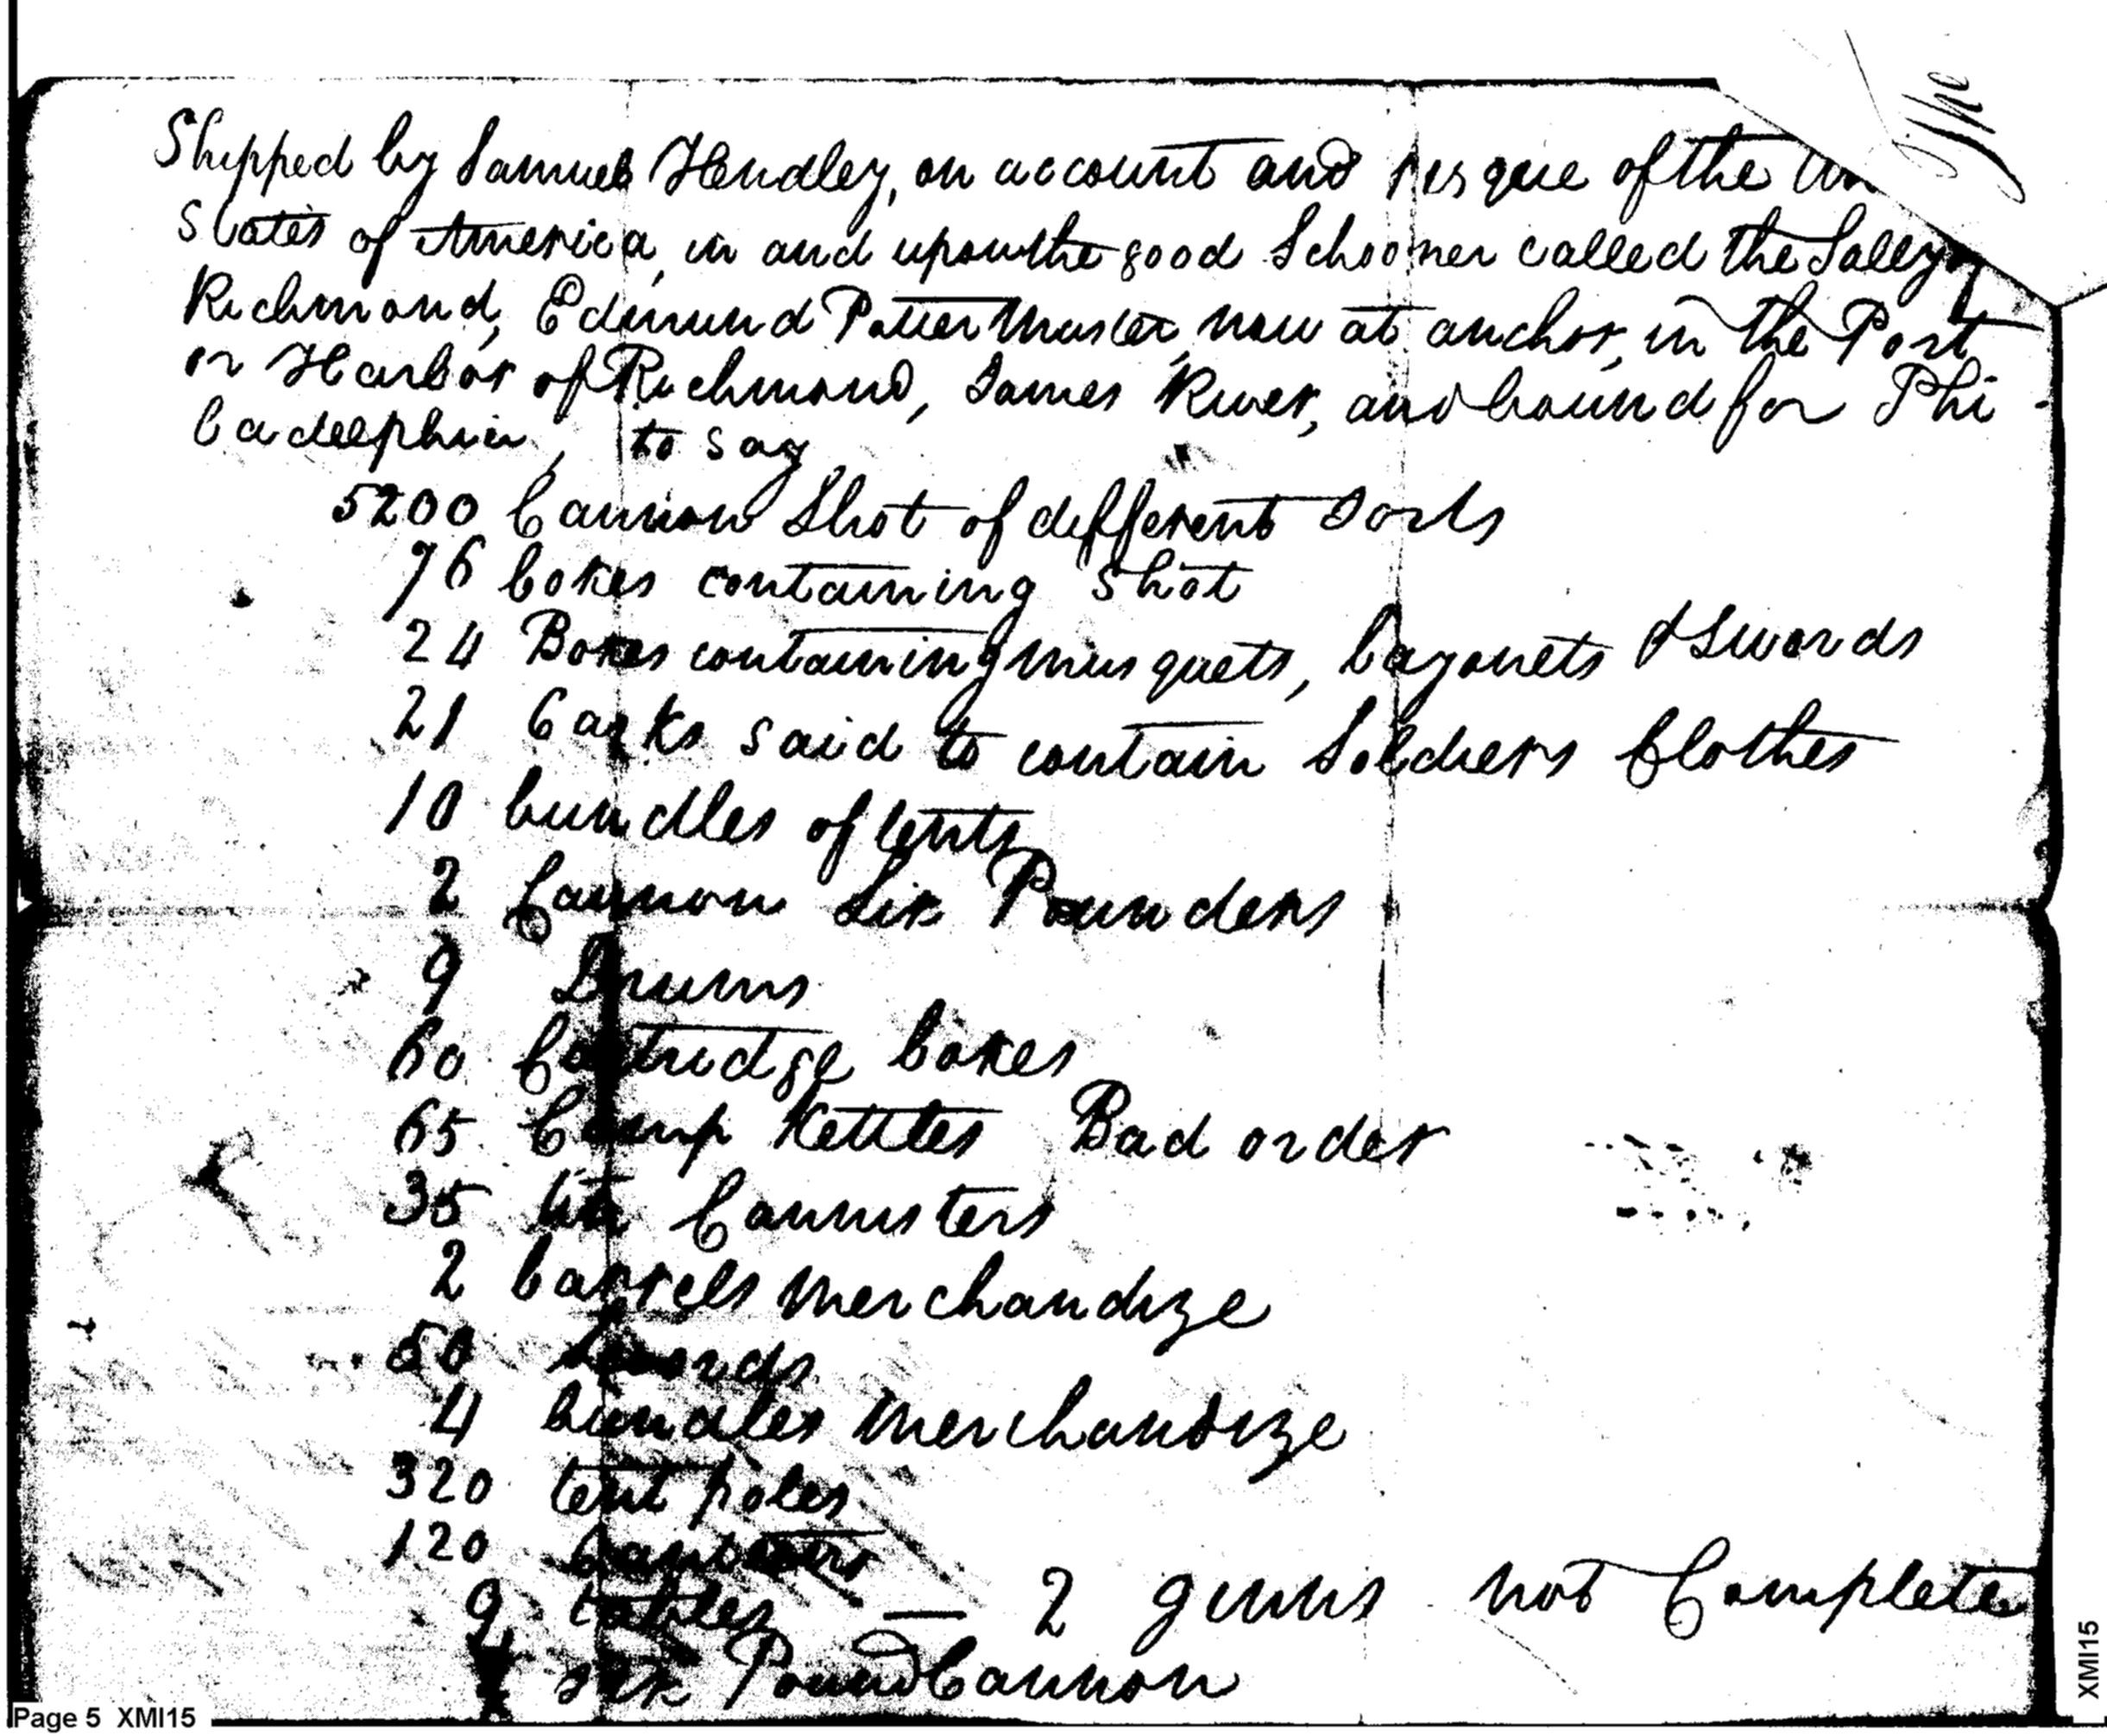 The
Shipped by Samuel Hendley, on account and resque of the Un
States of America, in and upon the good Schooner called the Sally of
Richmond, Edmund Potter Master, now at anchor, in the Port
or Harbor of Richmond, James River, and bound for Phi-
ladelphia, to say
5200 Cannon Shot of different Sorts
76 boxes containing Shot
24 Boxes containing musquets, bayonets & Swords
21 Casks said to contain Soldiers Clothes
10 bundles of tents
2 Cannon Six Pounders
9 Drums
60 Cartridge boxes
65 Camp Kettles Bad order
35 tin Cannisters
2 barrels Merchandize
50 Swords
4 bundles Merchandize
320 tent poles
120
9 tables — 2 guns not Complete
six Pound Cannon
Page 5 XMI15
XMI15